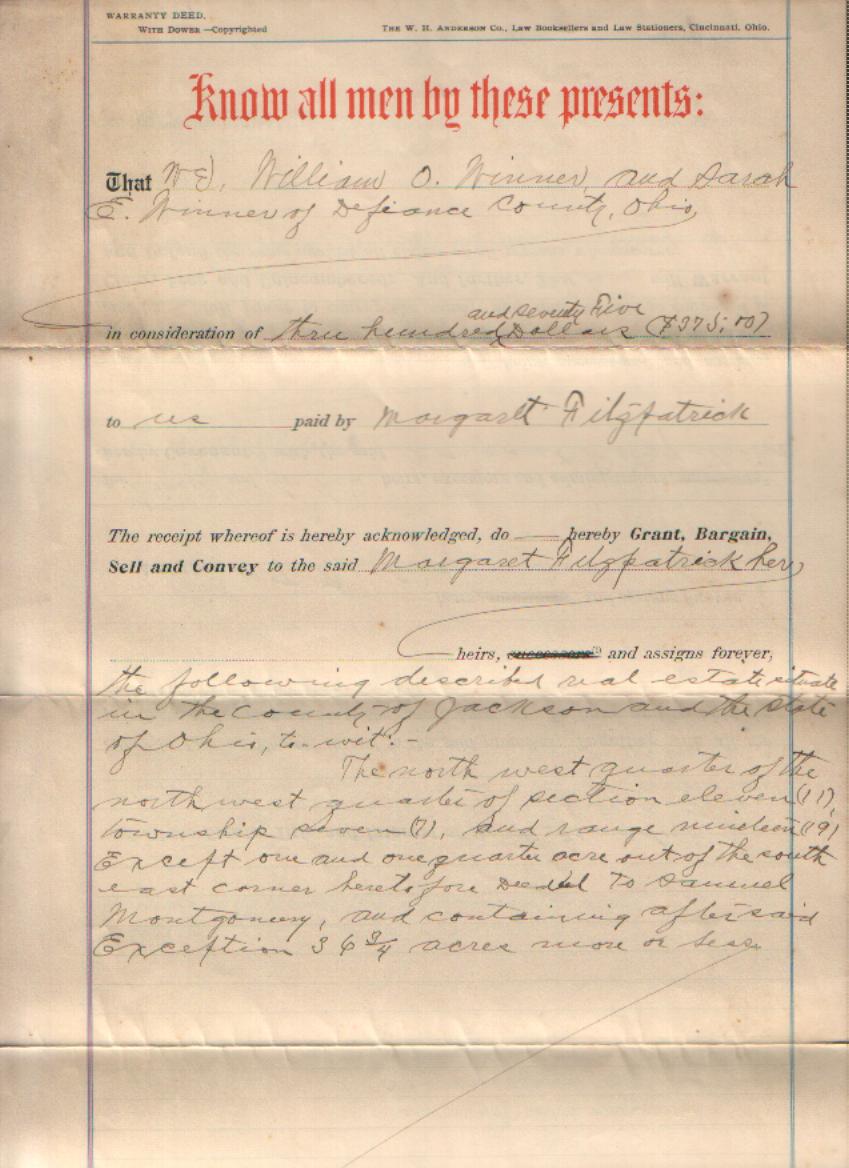 WARRANTY DEED.
WITH DOWER —Copyrighted THE W. H. ANDERSON CO., Law Booksellers and Law Stationers, Cincinnati, Ohio.
Know all men by these presents:
That We, William O. Winner, and Sarah
E. Winner of Defiance County, Ohio,
and seventy Five
in consideration of three hundred Dollars ($375.00)
to us paid by Margaret Fitzpatrick
The receipt whereof is hereby acknowledged, do hereby Grant, Bargain,
Sell and Convey to the said Margaret Fitzpatrick her
heirs, successors and assigns forever,
the following described real estate situate
in the County of Jackson and the state
of Ohio, to-wit:-
The north west quarter of the
north west quarter of section eleven (11),
township seven (7), and range nineteen (19)
Except one and one quarter acre out of the south
east corner heretofore Deeded To Samuel
Montgomery, and containing after said
Exception 36 3/4 acres more or less.